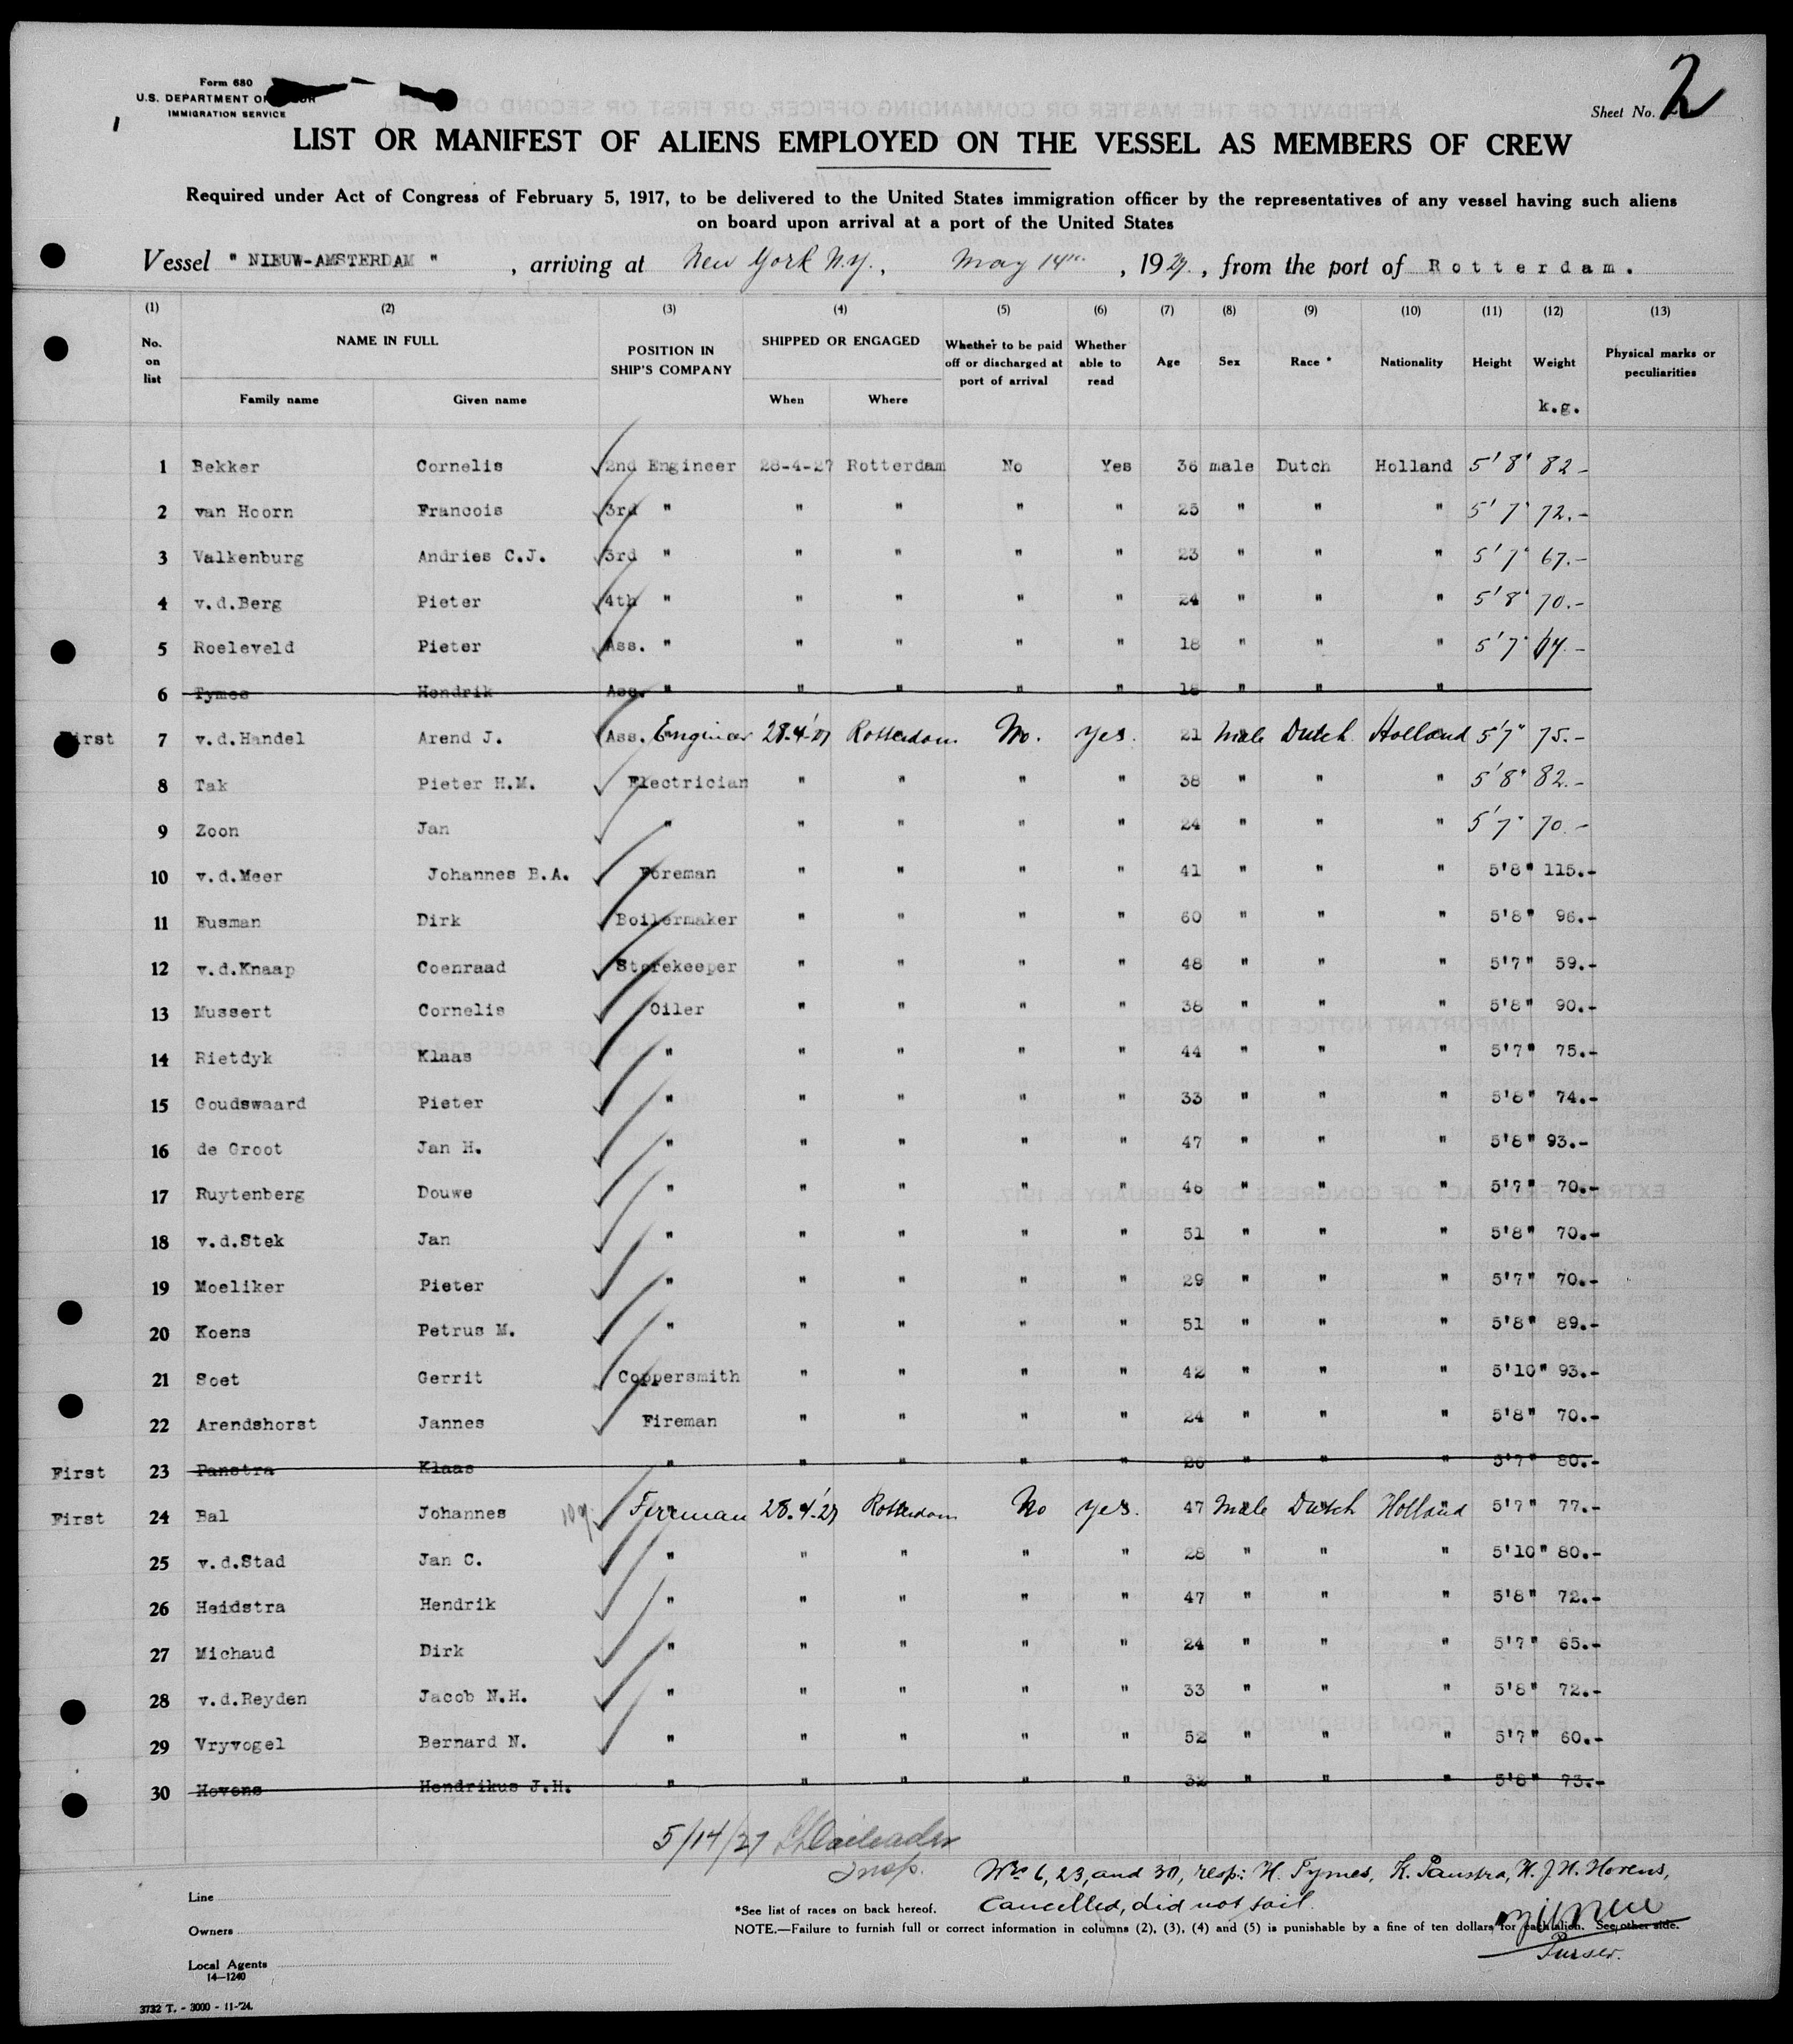 Form 680
U.S. DEPARTMENT OF
IMMIGRATION SERVICE
Sheet No. 2
LIST OR MANIFEST OF ALIENS EMPLOYED ON THE VESSEL AS MEMBERS OF CREW
Required under Act of Congress of February 5, 1917, to be delivered to the United States immigration officer by the representatives of any vessel having such aliens
on board upon arrival at a port of the United States
Vessel " NIEUW-AMSTERDAM " , arriving at New York N.Y., May 14th , 1927 , from the port of Rotterdam.
(1) (2) (3) (4) (5) (6) (7) (8) (9) (10) (11) (12) (13)
No. on list NAME IN FULL Family name Given name POSITION IN SHIP'S COMPANY SHIPPED OR ENGAGED When Where Whether to be paid off or discharged at port of arrival Whether able to read Age Sex Race * Nationality Height Weight k.g. Physical marks or peculiarities
1 Bekker Cornelis 2nd Engineer 28-4-27 Rotterdam No Yes 36 male Dutch Holland 5'8" 82-
2 van Hoorn Francois 3rd " " " " " 25 " " " 5'7" 72.-
3 Valkenburg Andries C.J. 3rd " " " " " 23 " " " 5'7" 67.-
4 v.d.Berg Pieter 4th " " " " " 24 " " " 5'8" 70.-
5 Roeleveld Pieter Ass. " " " " " 18 " " " 5'7"
6 Tymes Hendrik Ass. " " " " " 18 " " "
First 7 v.d.Handel Arend J. Ass. Engineer 28.4.'27 Rotterdam No. yes. 21 Male Dutch Holland 5'7" 75.-
8 Tak Pieter H.M. Electrician " " " " 38 " " " 5'8" 82.-
9 Zoon Jan " " " " " 24 " " " 5'7" 70.-
10 v.d.Meer Johannes B.A. Foreman " " " " 41 " " " 5'8" 115.-
11 Eusman Dirk Boilermaker " " " " 60 " " " 5'8" 96.-
12 v.d.Knaap Coenraad Storekeeper " " " " 48 " " " 5'7" 59.-
13 Mussert Cornelis Oiler " " " " 38 " " " 5'8" 90.-
14 Rietdyk Klaas " " " " " 44 " " " 5'7" 75.-
15 Goudswaard Pieter " " " " " 33 " " " 5'8" 74.-
16 de Groot Jan H. " " " " " 47 " " " 5'8" 93.-
17 Ruytenberg Douwe " " " " " 46 " " " 5'7" 70.-
18 v.d.Stek Jan " " " " " 51 " " " 5'8" 70.-
19 Moeliker Pieter " " " " " 29 " " " 5'7" 70.-
20 Koens Petrus M. " " " " " 51 " " " 5'8" 89.-
21 Soet Gerrit Coppersmith " " " " 42 " " " 5'10" 93.-
22 Arendshorst Jannes Fireman " " " " 24 " " " 5'8" 70.-
First 23 Panstra Klaas " " " " " 26 " " " 5'7" 80.-
First 24 Bal Johannes Fireman 28.4.'27 Rotterdam No yes. 47 Male Dutch Holland 5'7" 77.-
25 v.d.Stad Jan C. " " " " " 28 " " " 5'10" 80.-
26 Heidstra Hendrik " " " " " 47 " " " 5'8" 72.-
27 Michaud Dirk " " " " " 24 " " " 5'7" 65.-
28 v.d.Reyden Jacob N.H. " " " " " 33 " " " 5'8" 72.-
29 Vryvogel Bernard N. " " " " " 52 " " " 5'7" 60.-
30 Hovens Hendrikus J.H. " " " " " 32 " " " 5'8" 73.-
5/14/27
Insp.
Nrs 6, 23, and 30, resp: H. Tymes, K. Panstra, H. J. H. Hovens,
Cancelled, did not sail.
Line
Owners
Local Agents
14—1240
*See list of races on back hereof.
NOTE.—Failure to furnish full or correct information in columns (2), (3), (4) and (5) is punishable by a fine of ten dollars for each alien. See other side.
Purser.
3732 T. - 3000 - 11-'24.